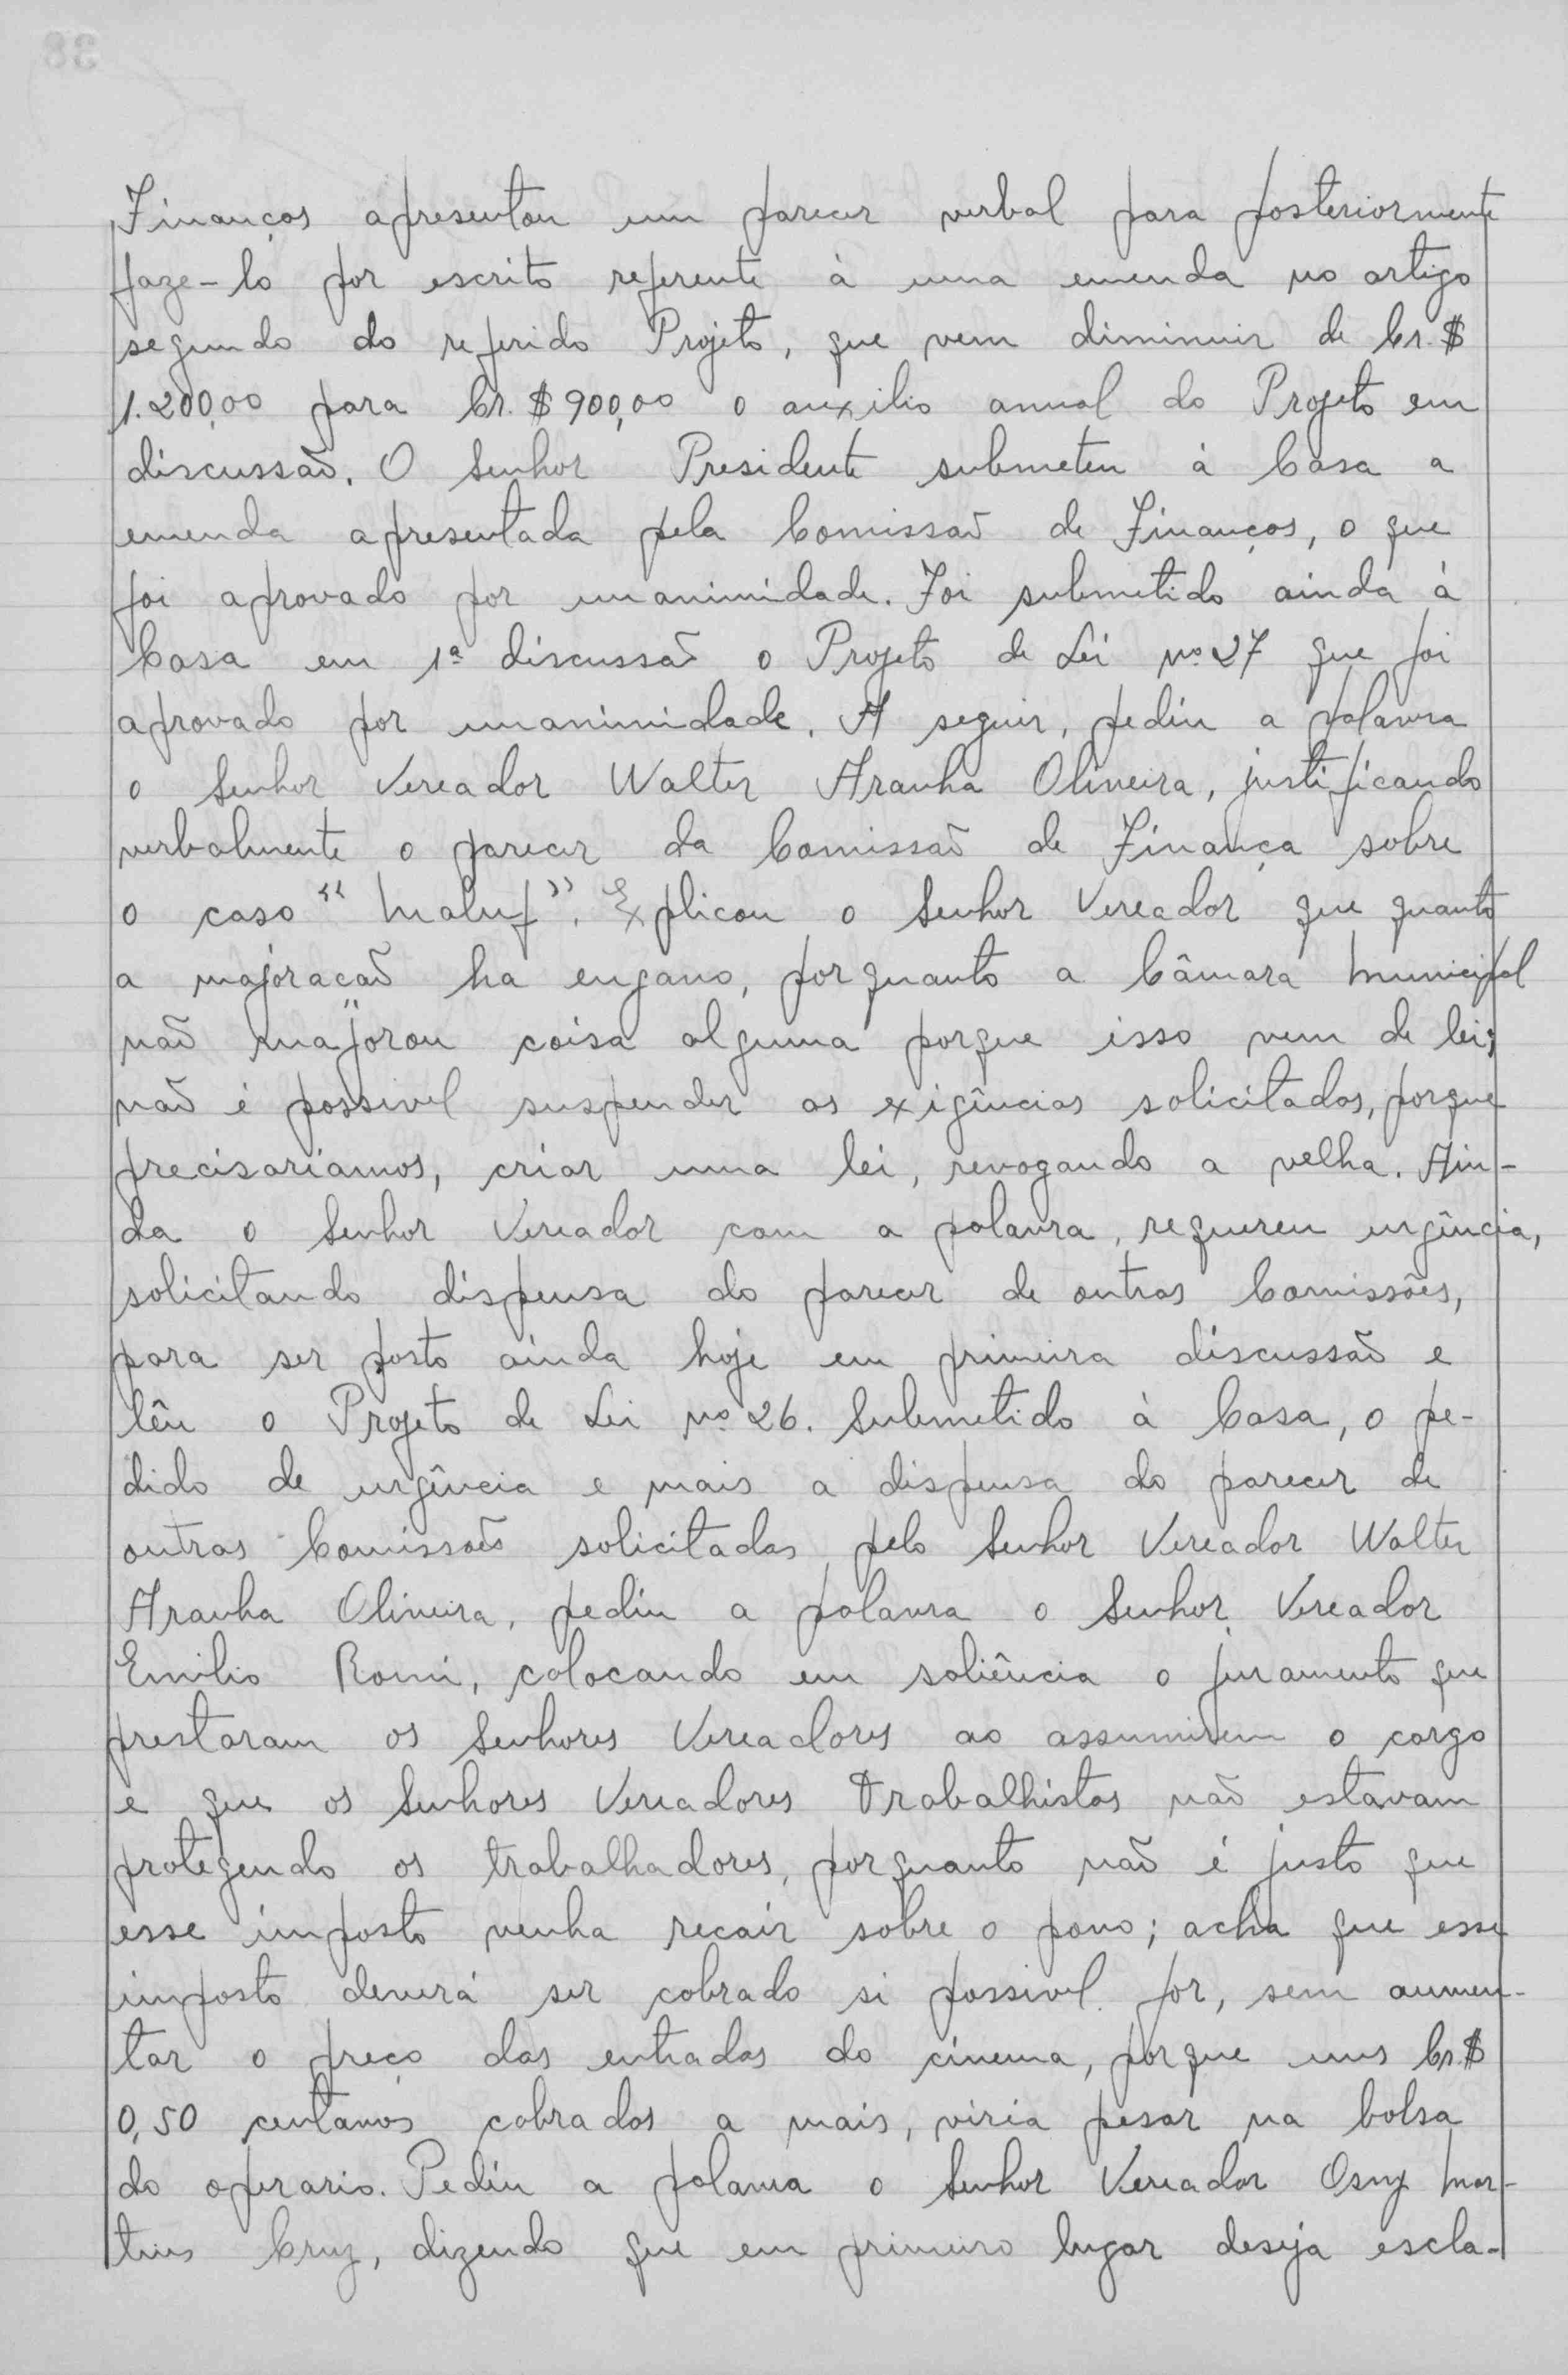 Finanças apresentou um parecer verbal para posteriormente
faze-lo por escrito referente à uma emenda no artigo
segundo do referido Projeto, que vem diminuir de Cr.$
1.200,00 para Cr.$900,00 o auxilio anual do Projeto em
discussão. O Senhor Presidente submeteu à Casa a
emenda apresentada pela Comissão de Finanças, o que
foi aprovado por unanimidade. Foi submetido ainda à
Casa em 1ª discussão o Projeto de Lei nº 27 que foi
aprovado por unanimidade. A seguir, pediu a palavra
o Senhor Vereador Walter Aranha Oliveira, justificando
verbalmente o parecer da Comissão de Finança sobre
o caso "Maluf". Explicou o Senhor Vereador que quanto
a majoracão ha engano, porquanto a Câmara Municipal
não majorou coisa alguma porque isso vem de lei;
não é possivel suspender as exigências solicitadas, porque
precisariamos, criar uma lei, revogando a velha. Ain-
da o Senhor Vereador com a palavra, requereu urgência,
solicitando dispensa do parecer de outras Comissões,
para ser posto ainda hoje em primeira discussão e
lêu o Projeto de Lei nº 26. Submetido à Casa, o pe-
dido de urgência e mais a dispensa do parecer de
outras Comissões solicitadas pelo Senhor Vereador Walter
Aranha Oliveira, pediu a palavra o Senhor Vereador
Emilio Romi, colocando em saliência o juramento que
prestaram os Senhores Vereadores ao assumirem o cargo
e que os Senhores Vereadores Trabalhistas não estavam
protegendo os trabalhadores, porquanto não é justo que
esse imposto venha recair sobre o povo; acha que esse
imposto deverá ser cobrado si possivel for, sem aumen-
tar o preço das entradas do cinema, porque uns Cr.$
0,50 centavos cobrados a mais, viria pesar na bolsa
do operario. Pediu a palavra o Senhor Vereador Osny Mar-
tins Cruz, dizendo que em primeiro lugar deseja escla-